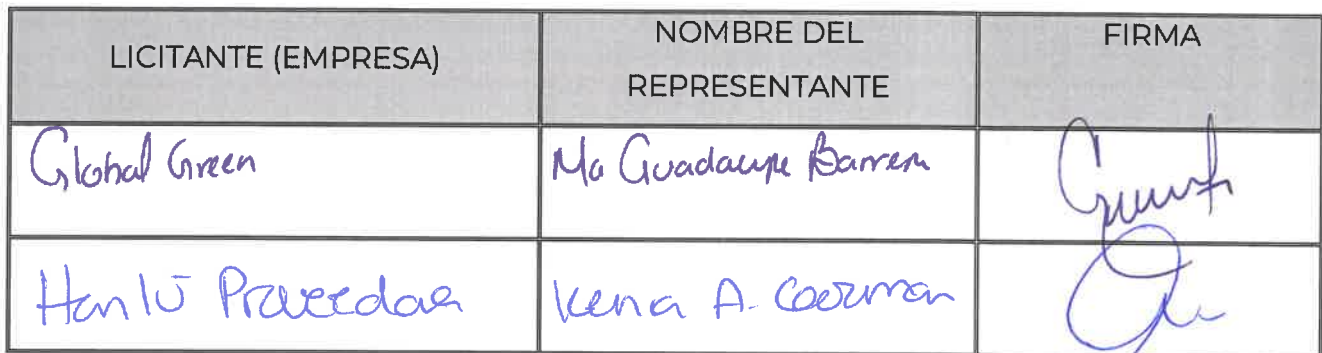 LICITANTE (EMPRESA)
NOMBRE DEL
REPRESENTANTE
FIRMA
Global Green
Ma Guadalupe Barrera
Hanlu
Kena A.